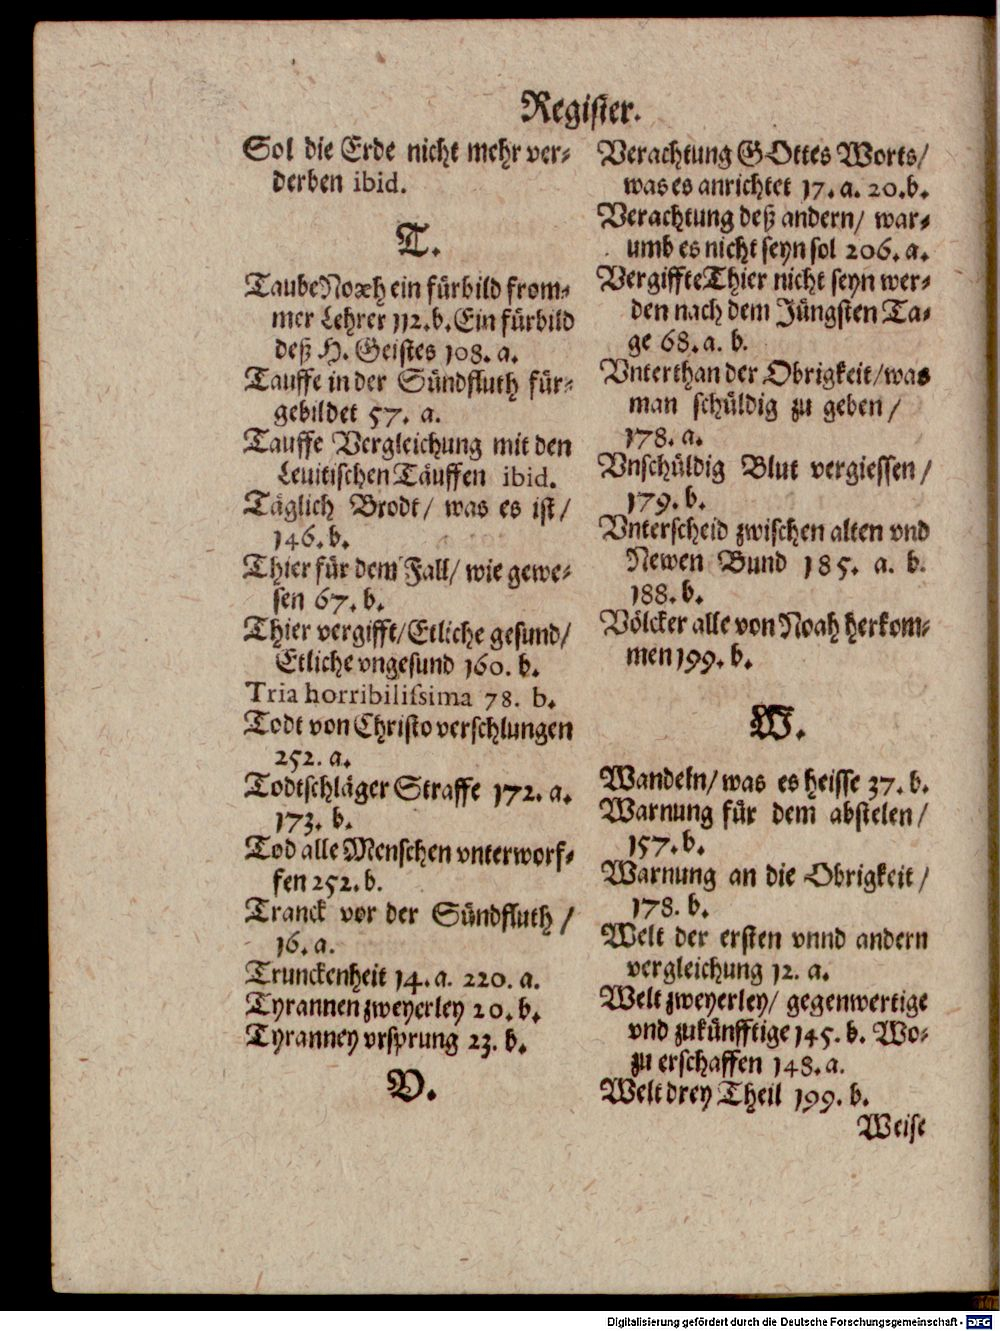 Register.
Sol die Erde nicht mehr ver⸗
derben ibid.
T.
Taube Noæh ein fürbild from⸗
mer Lehrer 112. b. Ein fürbild
deß H. Geistes 108. a.
Tauffe in der Sündfluth für⸗
gebildet 57. a.
Tauffe Vergleichung mit den
Leuitischen Täuffen ibid.
Täglich Brodt / was es ist /
146. b.
Thier für dem Fall / wie gewe⸗
sen 67. b.
Thier vergifft / Etliche gesund /
Etliche vngesund 160. b.
Tria horribilissima 78. b.
Todt von Christo verschlungen
252. a.
Todtschläger Straffe 172. a.
173. b.
Tod alle Menschen vnterworf⸗
fen 252. b.
Tranck vor der Sündfluth /
16. a.
Trunckenheit 14. a. 220. a.
Tyrannen zweyerley 20. b.
Tyranney vrsprung 23. b.
V.
Verachtung GOttes Worts /
was es anrichtet 17. a. 20. b.
Verachtung deß andern / war⸗
umb es nicht seyn sol 206. a.
Vergiffte Thier nicht seyn wer⸗
den nach dem Jüngsten Ta⸗
ge 68. a. b.
Vnterthan der Obrigkeit / was
man schüldig zu geben /
178. a.
Vnschüldig Blut vergiessen /
179. b.
Vnterscheid zwischen alten vnd
Newen Bund 185. a. b.
188. b.
Völcker alle von Noah herkom⸗
men 199. b.
W.
Wandeln / was es heisse 37. b.
Warnung für dem abstelen /
157. b.
Warnung an die Obrigkeit /
178. b.
Welt der ersten vnnd andern
vergleichung 12. a.
Welt zweyerley / gegenwertige
vnd zukünfftige 145. b. Wo⸗
zu erschaffen 148. a.
Welt drey Theil 199. b.
Weise
Digitalisierung gefördert durch die Deutsche Forschungsgemeinschaft - DFG